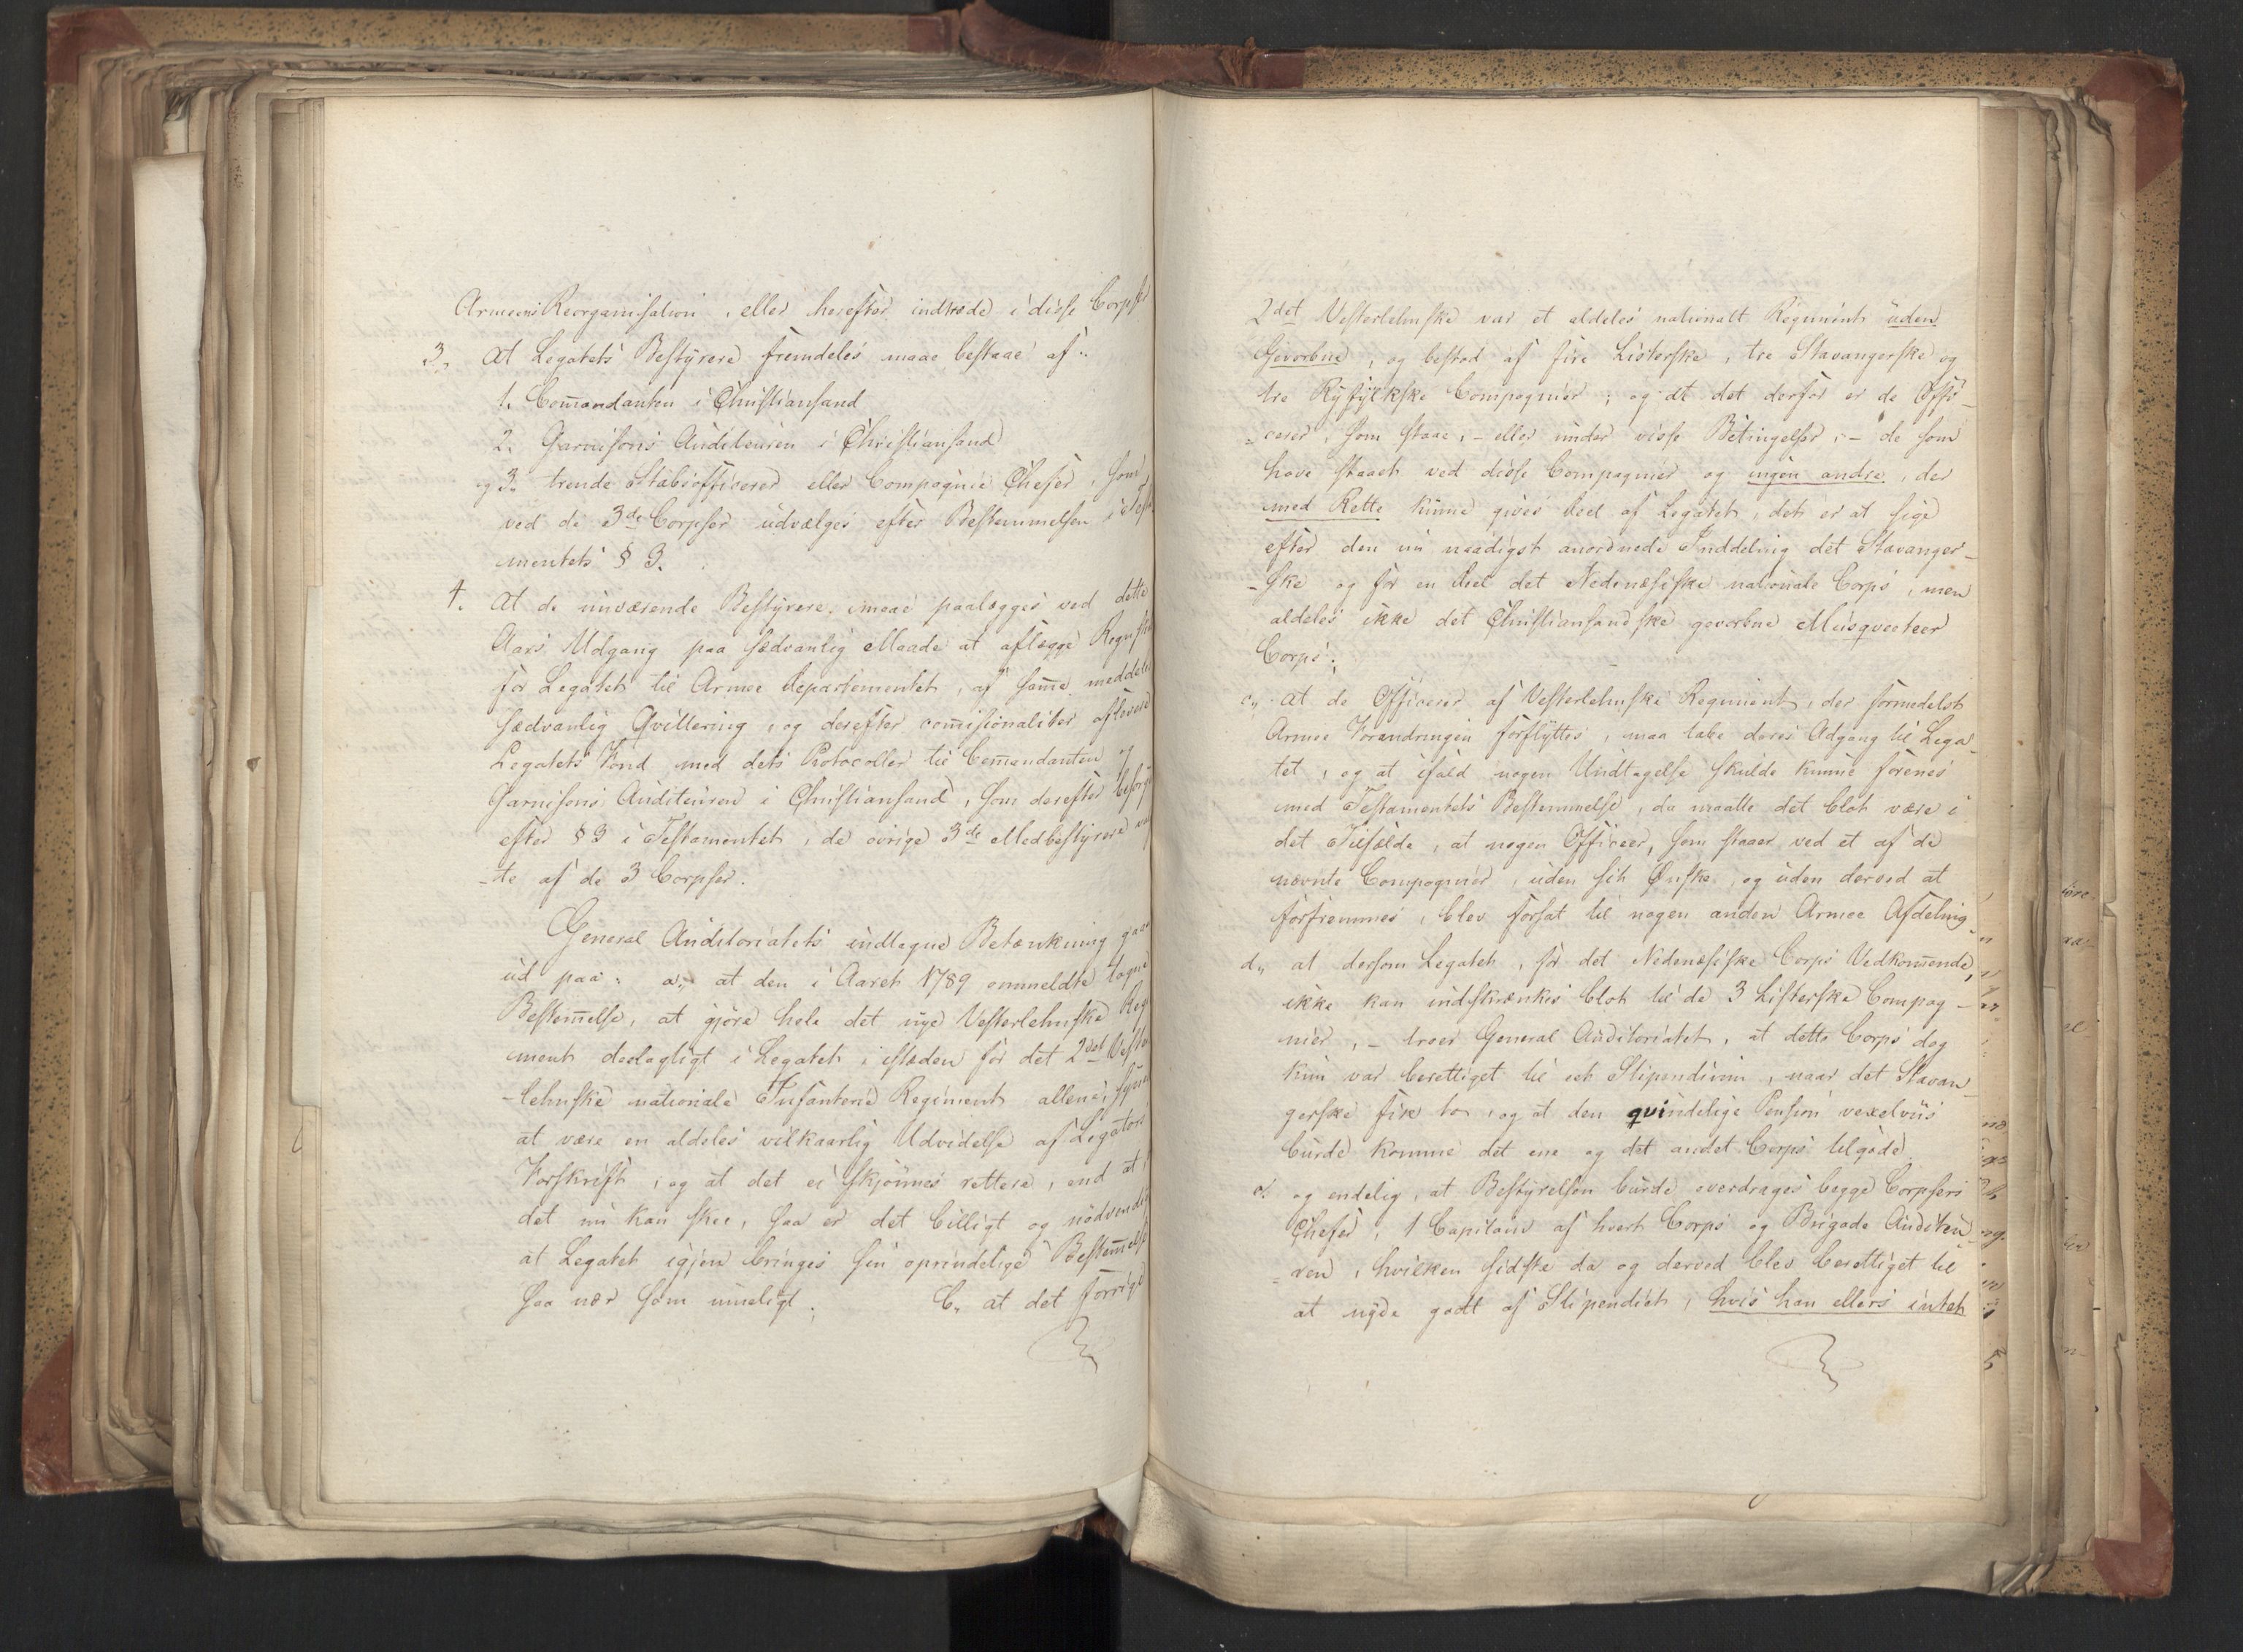 Armeens Reorganisation, eller herefter indtræde i disse Corpser
3, at Legatets Bestÿrere fremdeles maae bestaae af:
1. Com̄andanten i Christiansand
2. Garnisons Auditeuren i Christiansand
og 3. trende Stabsofficerer eller Compagnie Chefer, som
ved de 3de Corpser udvælges efter Bestemmelsen i Testa
mentets § 3.
4. At de nuværende Bestÿrere, maae paalægges ved dette
Aars Udgang paa sædvanlig Maade at aflægge Regnskab
for Legatet til Armee Departementet, af samē meddeles
sædvanlig Qvittering, og derefter com̄isionaliter aflevere
Legatets Fond med dets Protocoller til Com̄andanten og
Garnisons Auditeuren i Christiansand, som derefter besørge
efter § 3 i Testamentet, de øvrige 3de Medbestÿrere val
-te af de 3 Corpser.
General Auditoriatets indtagne Betænkning gaaer
ud paa: a., at den i Aaret 1789 ommeldte tagne
Bestem̄else, at gjöre hele det nye Vesterlehnske Regi
ment deelagtigt i Legatet, istæden for det 2det Vester
-lehnske nationale Infanterie Regiment allene, synes
at være en aldeles vilkaarlig Udvidelse af Legators
Forskrift; og at det ei skjönnes rettere, end at
det nu kan skee, saa er det billigt og nødvendigt
at Legatet igjen bringes sin oprindelige Bestem̄else
saa nær som mueligt; b., at det forrige
2det Vesterlehnske var et aldeles nationalt Regiment uden
Gevorbne, og bestod af fire Listerske, tre Stavangerske og
tre Rÿfÿlkske Compagnier; og at det derfor er de Offi-
-cerer, som staae, - eller under visse Betingelser, - de som
have staaet ved disse Compagnier og ingen andre, der
med Rette kunne gives Deel af Legatet, det er at sige
efter den nu naadigst anordnede Inddeling det Stavanger-
-ske og for en Deel det Nedenæsiske nationale Corps, men
aldeles ikke det Christiansandske gevorbne Musqveteer
Corps;
c., at de Officerer af Vesterlehnske Regiment, der formedelst
Armee Forandringen forflÿttes, maa tabe deres Adgang til Lega-
tet, og at ifald nogen Undtagelse skulde kunne forenes
med Testamentets Bestemmelse, da maatte det blot være i
det Tilfælde, at nogen Officeer, som staaer ved et af de
nævnte Compagnier, uden sit Ønske, og uden derved at
forfremmes, blev forsat til nogen anden Armee Afdeling
d., at dersom Legatet, for det Nedenæsiske Corps Vedkom̄ende,
ikke kan indskrænkes blot til de 3 Listerske Compag-
nier, - troer General Auditoriatet, at dette Corps dog
kun var berettiget til eet Stipendium, naar det Stavan-
gerske fik to, og at den qvindelige Pension vexelviis
burde komme det ene og det andet Corps tilgode.
e. og endelig, at Bestÿrelsen burde overdrages begge Corpsers
Chefer, 1 Capitain af hvert Corps og Brigade Auditeu-
-ren, hvilken sidste da og derved blev berettiget til
at nÿde godt af Stipendiet, hvis han ellers intet